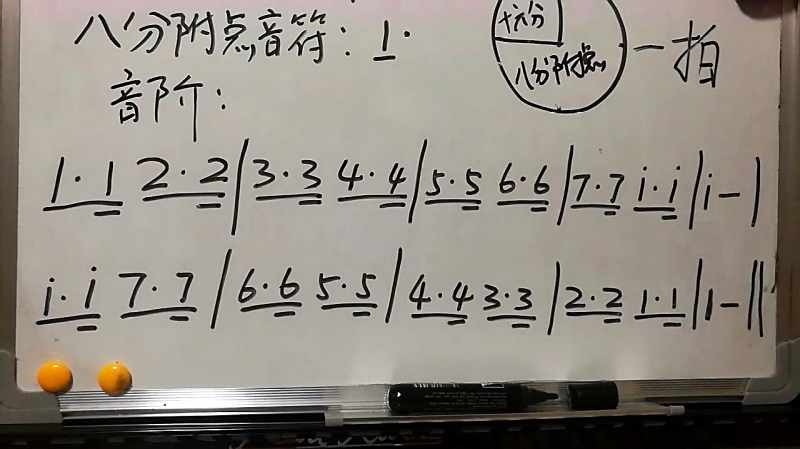 八分附点音符：1·
十六分
八分附点
一拍
音阶：
1·1 2·2|3·3 4·4|5·5 6·6|7·7 i·i|i-|
i·i 7·7|6·6 5·5|4·4 3·3|2·2 1·1|1-||